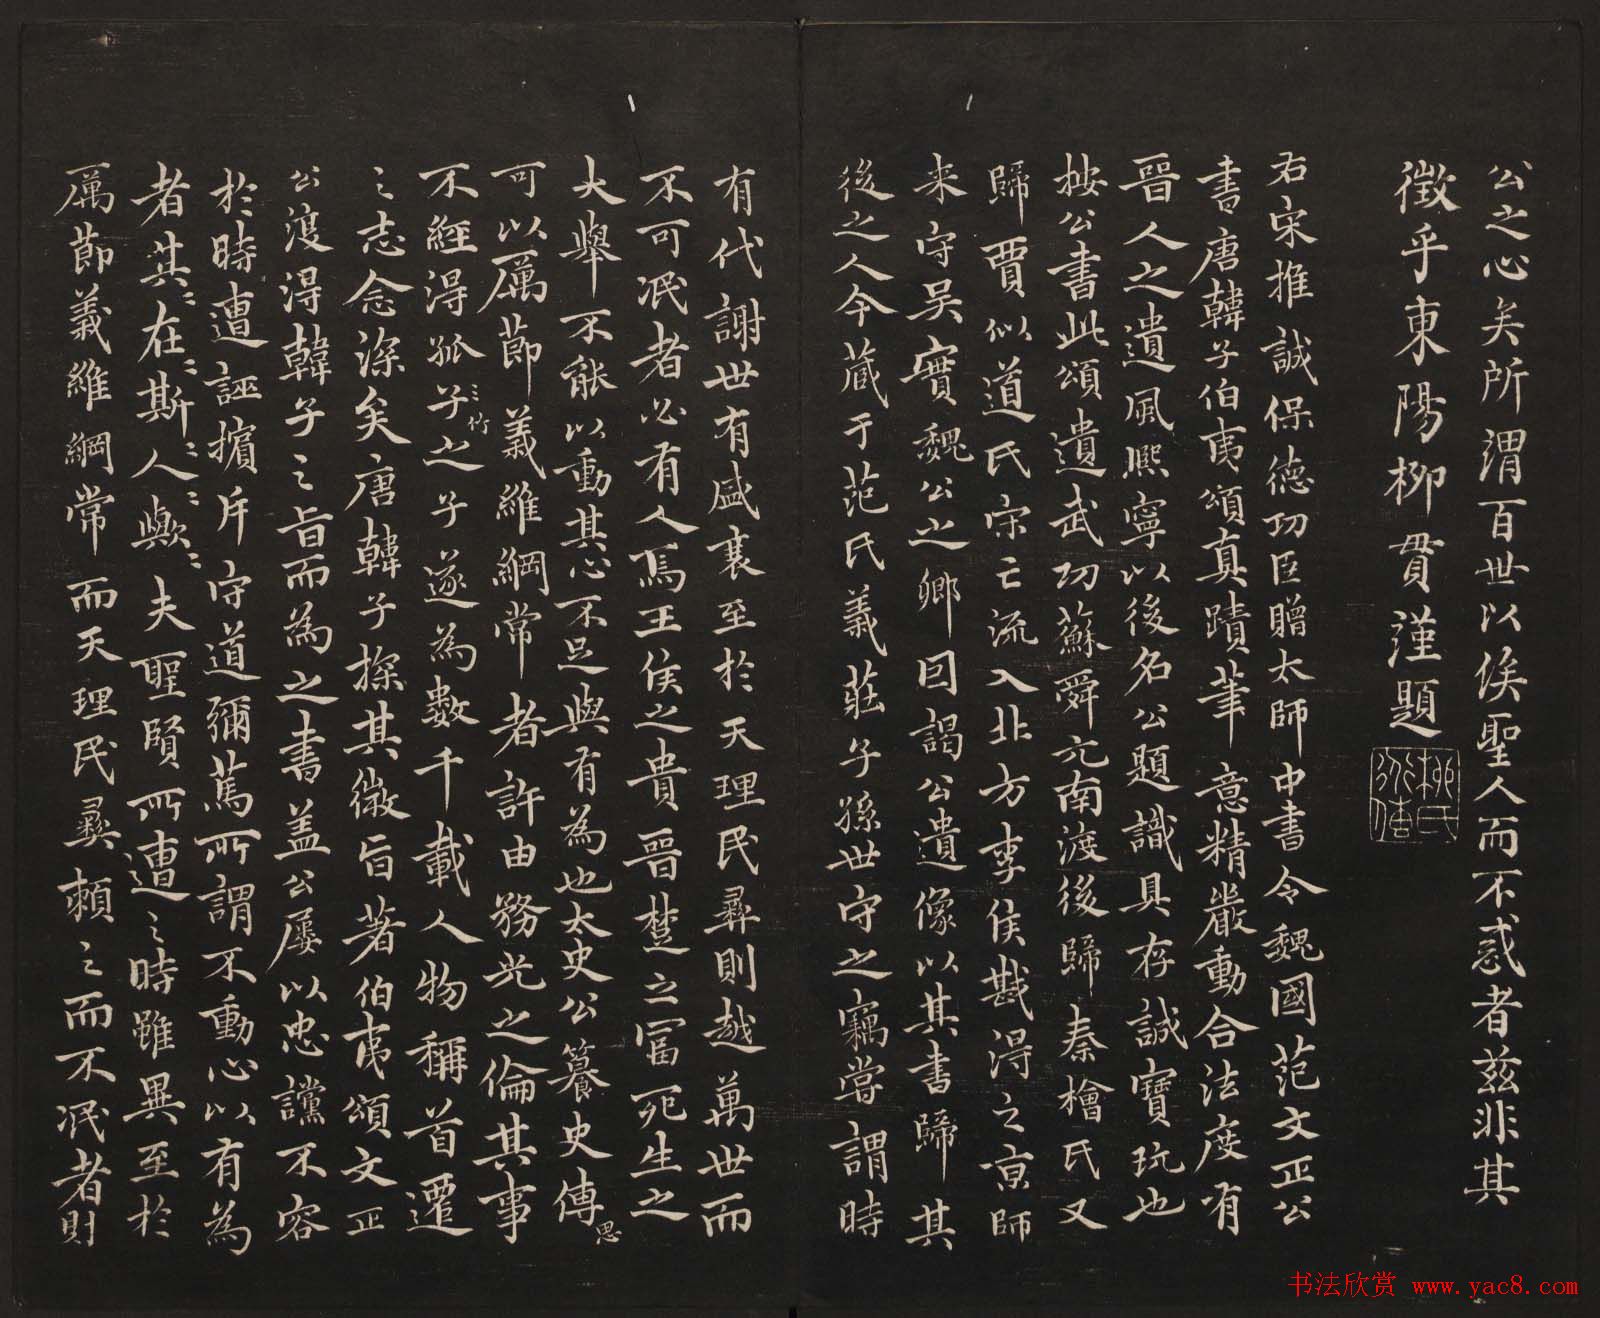 公之心矣所謂百世以俟聖人而不惑者兹非其
徵乎東陽柳貫謹題
柳氏
右宋推誠保德功臣贈太師中書令魏國范文正公
書唐韓子伯夷頌真蹟筆意精嚴動合法度有
晉人之遺風熈寧以後名公題識具存誠寶玩也
按公書此頌遺武功蘇舜元南渡後歸秦檜氏又
歸賈似道氏宋亡流入北方李侯戡得之京師
来守吴實魏公之鄉因謁公遺像以其書歸其
後之人今蔵于范氏義莊子孫世守之竊嘗謂時
有代謝世有盛衰至於天理民彝則越萬世而
不可泯者必有人焉王侯之貴晉楚之富死生之
大舉不能以動其心不足與有為也太史公纂史傳思
可以厲節義維綱常者許由務光之倫其事
不經得孤竹子之子遂為數千載人物稱首遷
之志念深矣唐韓子探其微旨著伯夷頌文正
公復得韓子之旨而為之書盖公屢以忠讜不容
於時遭誣擯斥守道彌篤所謂不動心以有為
者其在斯人歟其在斯人歟夫聖賢所遭之時雖異至於
厲節義維綱常而天理民彝頼之而不泯者則
书法欣赏 www.yac8.com